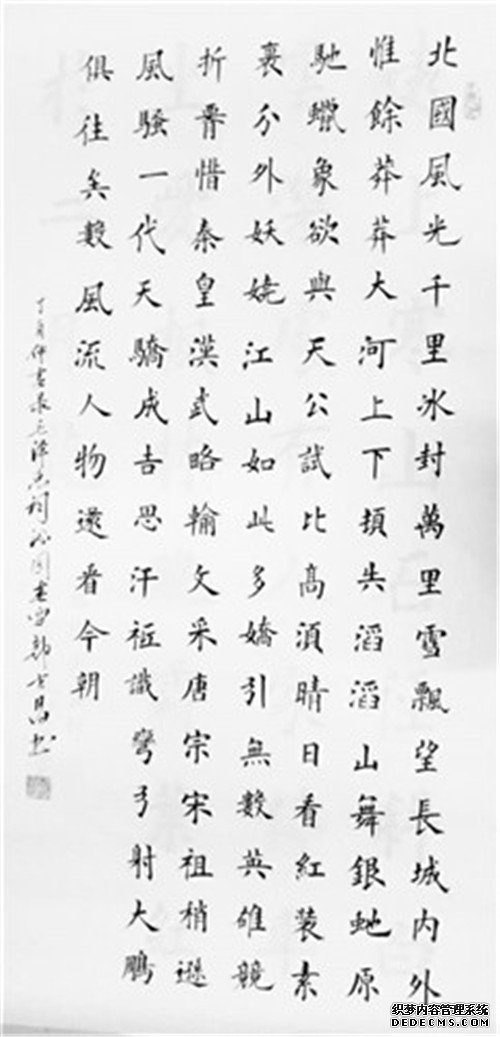 北國風光千里冰封萬里雪飄望長城內外
惟餘莽莽大河上下頓失滔滔山舞銀虵原
馳蠟象欲與天公試比高須晴日看紅裝素
裹分外妖嬈江山如此多嬌引無數英雄競
折腰惜秦皇漢武略輸文采唐宗宋祖稍遜
風騷一代天驕成吉思汗祗識彎弓射大鵬
俱往矣數風流人物還看今朝
丁亥仲書录毛澤东詞沁园春雪士昌书
织梦内容管理系统
DEDECMS.COM